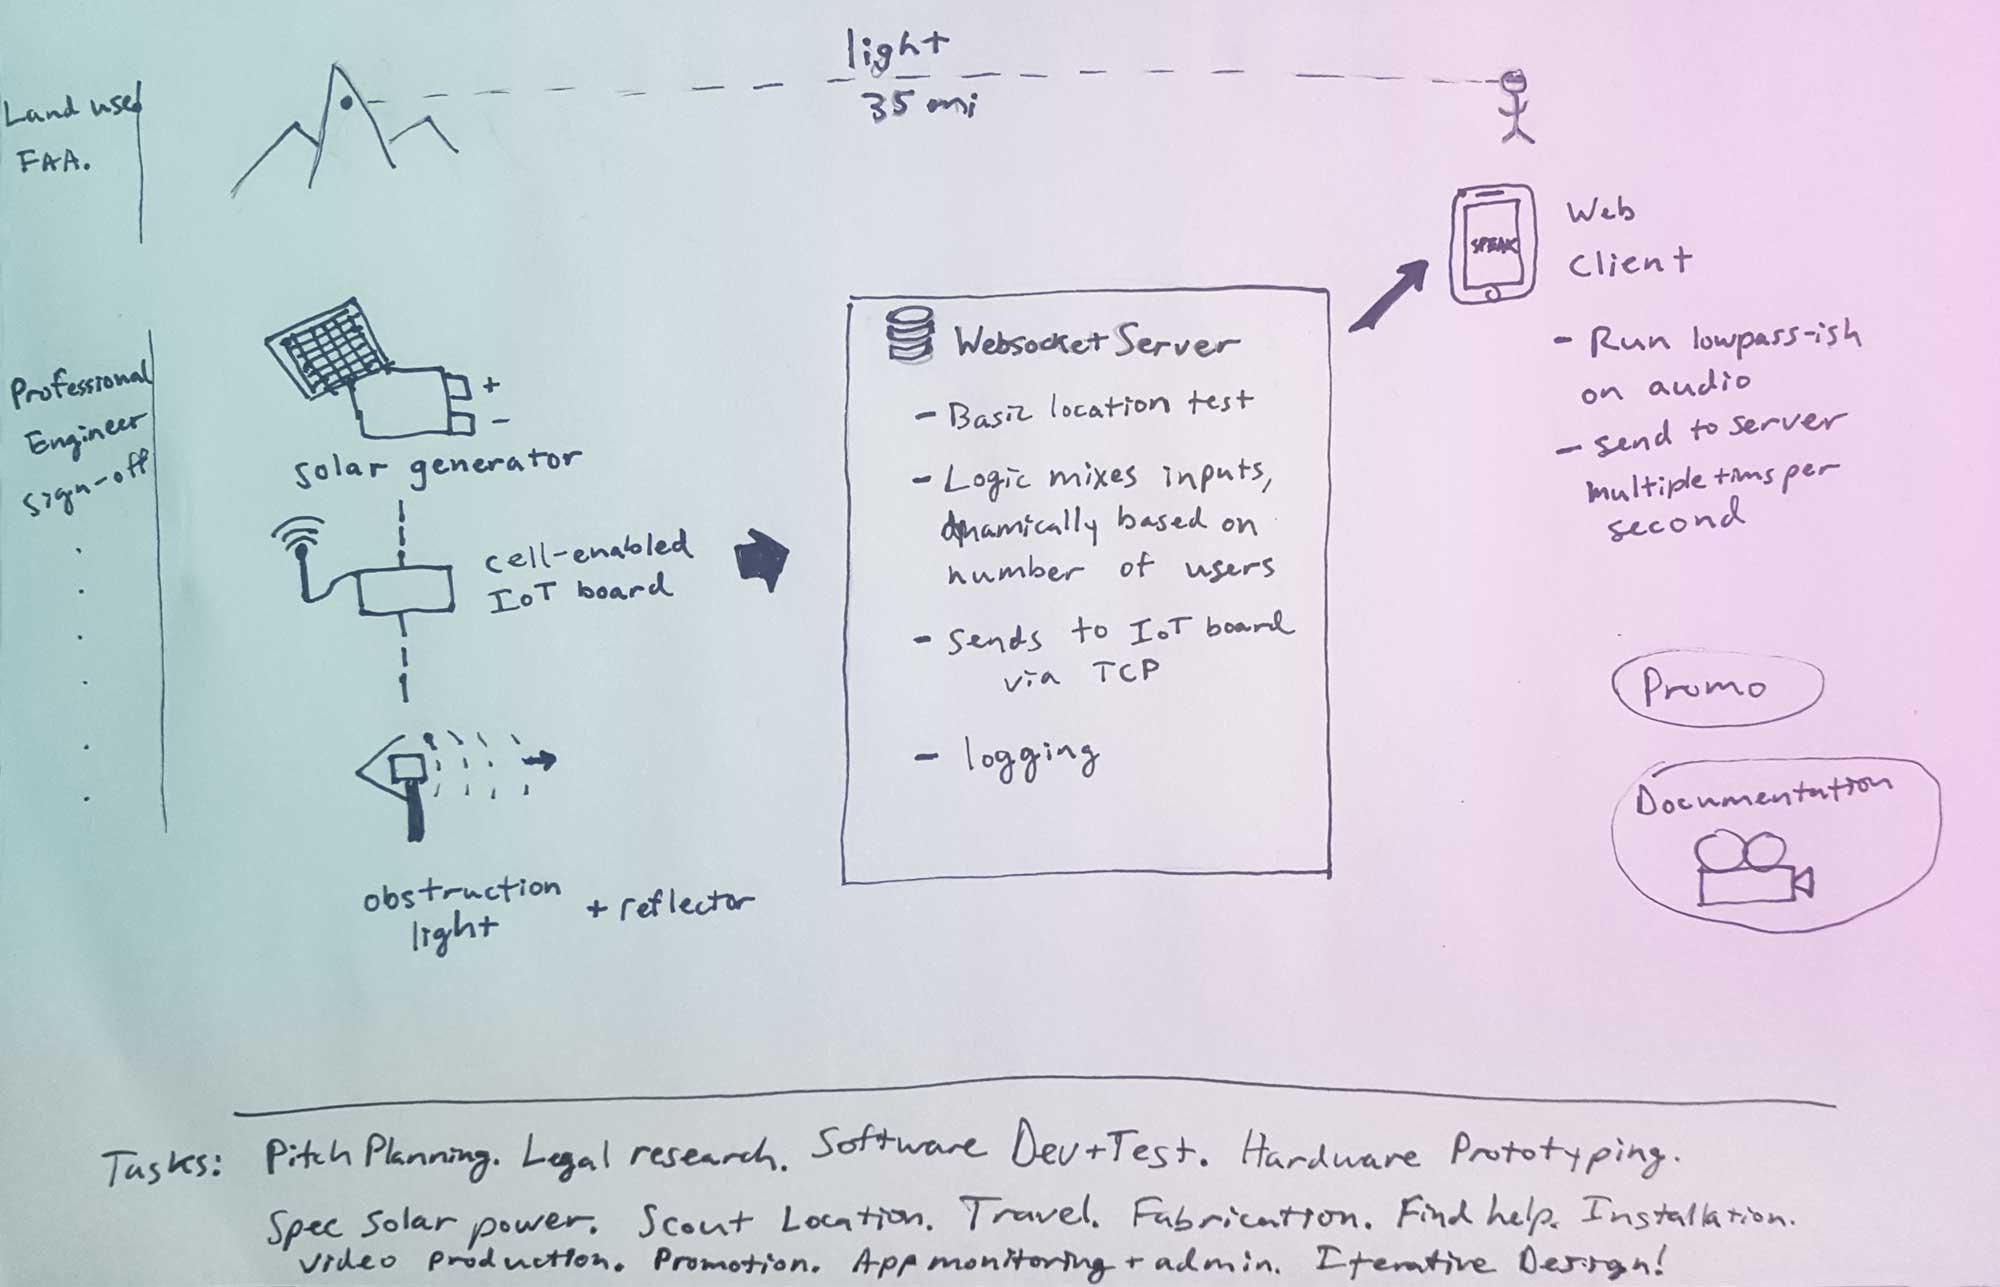 light
35 mi
Land use
FAA.
SPEAK
Web
Client
- Run lowpass-ish
on audio
- send to server
multiple tims per
second
Professional
Engineer
sign-off
+
-
solar generator
cell-enabled
IoT board
obstruction
light
+ reflector
Websocket Server
- Basic location test
- Logic mixes inputs,
dnamically based on
number of users
- sends to IoT board
via TCP
- logging
Promo
Documentation
Tasks: Pitch Planning. Legal research. Software Dev+Test. Hardware Prototyping.
Spec solar power. Scout Location. Travel. Fabrication. Find help. Installation.
Video production. Promotion. App monitoring + admin. Iterative Design!